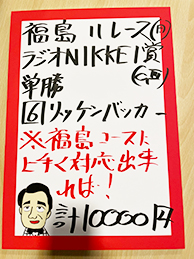 福島11レース(日)
ラジオNIKKEI賞
(GⅢ)
単勝
6リッケンバッカー
※福島コースに
上手く対応出来
れば!
計10000円